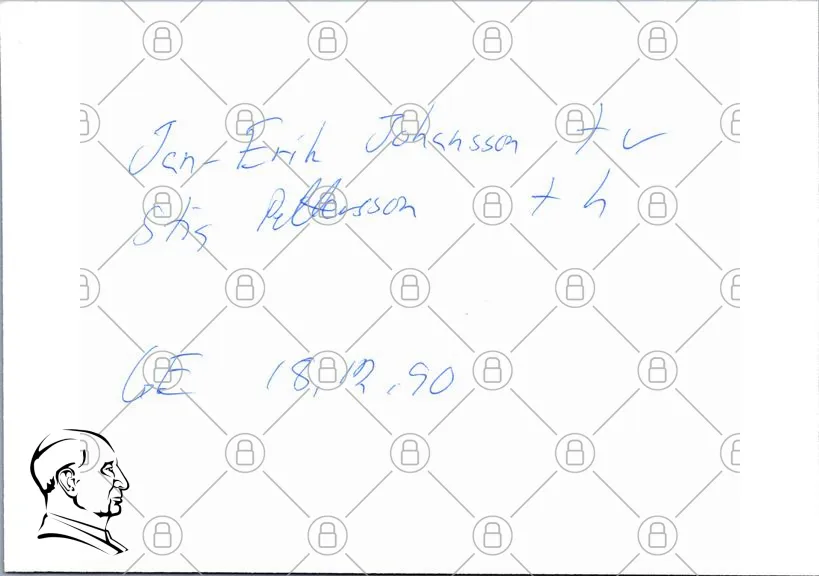 Jan-Erik Johansson t v
Stig Pettersson t h
GE 18.12.90